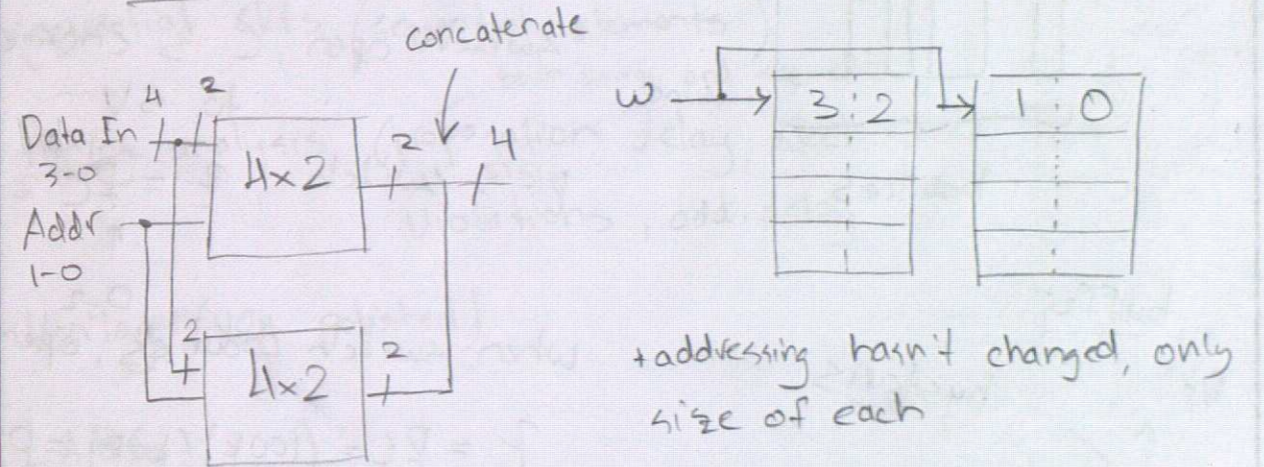 concatenate
4 2
Data In
3-0
Addr
1-0
4x2
2 4
2
4x2
2
w
3 2
1 0
+addressing hasn't changed, only
size of each